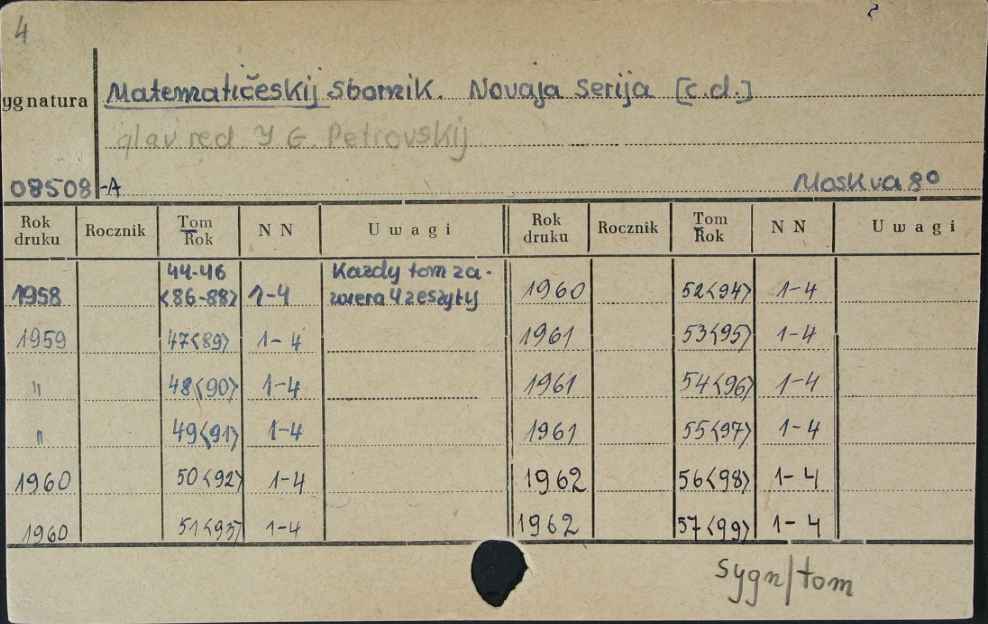 4
ygnatura
Matematičeskij Sbornik. Novaja Serija [c.d.]
glav red. I G. Petrovskij
08508-A Moskva 8°
Rok druku Rocznik Tom Rok N N Uwagi Rok druku Rocznik Tom Rok N N Uwagi
1958 44-46 <86-88> 1-4 Każdy tom za-
wiera 4 zeszyty
1960 52<94> 1-4
1959 47<89> 1-4 1961 53<95> 1-4
" 48<90> 1-4 1961 54<96> 1-4
" 49<91> 1-4 1961 55<97> 1-4
1960 50<92> 1-4 1962 56<98> 1-4
1960 51<93> 1-4 1962 57<99> 1-4
sygn/tom